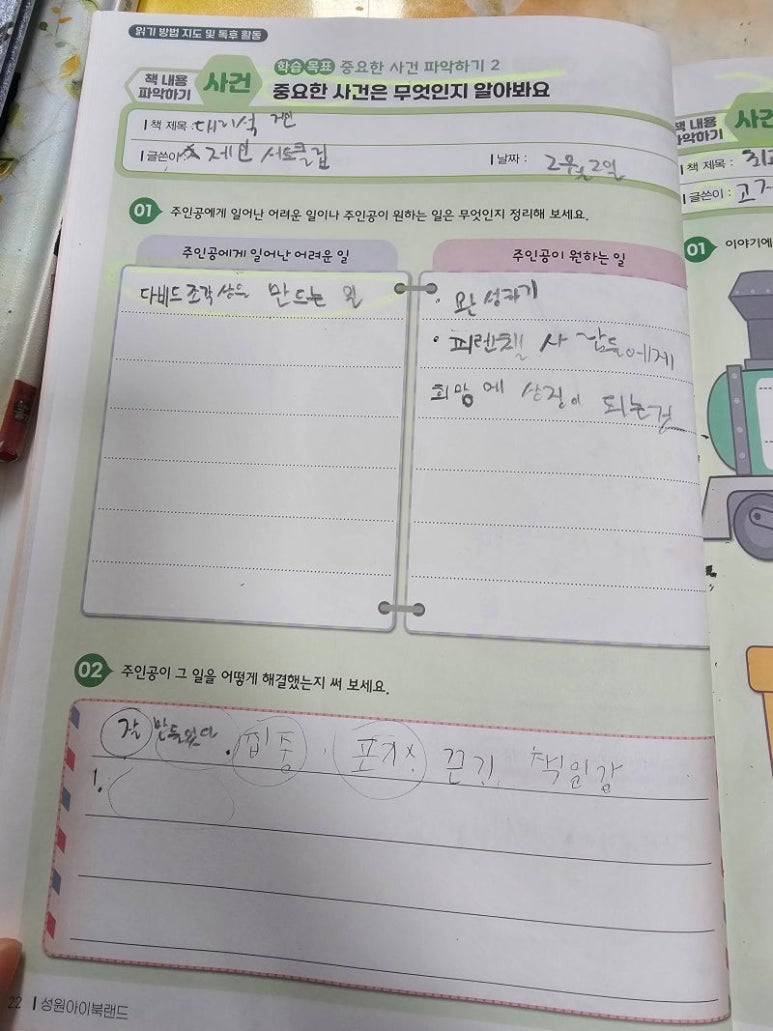 읽기 방법 지도 및 독후 활동
책 내용 파악하기
사건
학습 목표 중요한 사건 파악하기 2
중요한 사건은 무엇인지 알아봐요
책 제목 : 대리석 거인
글쓴이 : 제인 서트클립
날짜 : 2월 2일
01 주인공에게 일어난 어려운 일이나 주인공이 원하는 일은 무엇인지 정리해 보세요.
주인공에게 일어난 어려운 일
다비드 조각상을 만드는 일
주인공이 원하는 일
· 완성하기
· 피렌체 사람들에게
희망에 상징이 되는것
02 주인공이 그 일을 어떻게 해결했는지 써 보세요.
잘 만들었다. 집중, 끈기, 책임감
1.
22 성원아이북랜드
책 내용
파악하기
사건
책 제목 :
글쓴이 :
01 이야기에